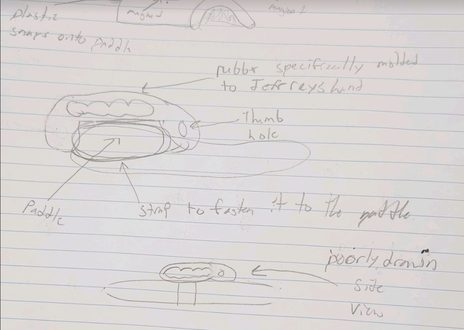 plastic
magned
magnet
snaps onto Paddle
rubber specifically molded
to Jeffreys hand
thumb
hole
Paddle
strap to fasten it to the paddle
poorly drawn
side
view